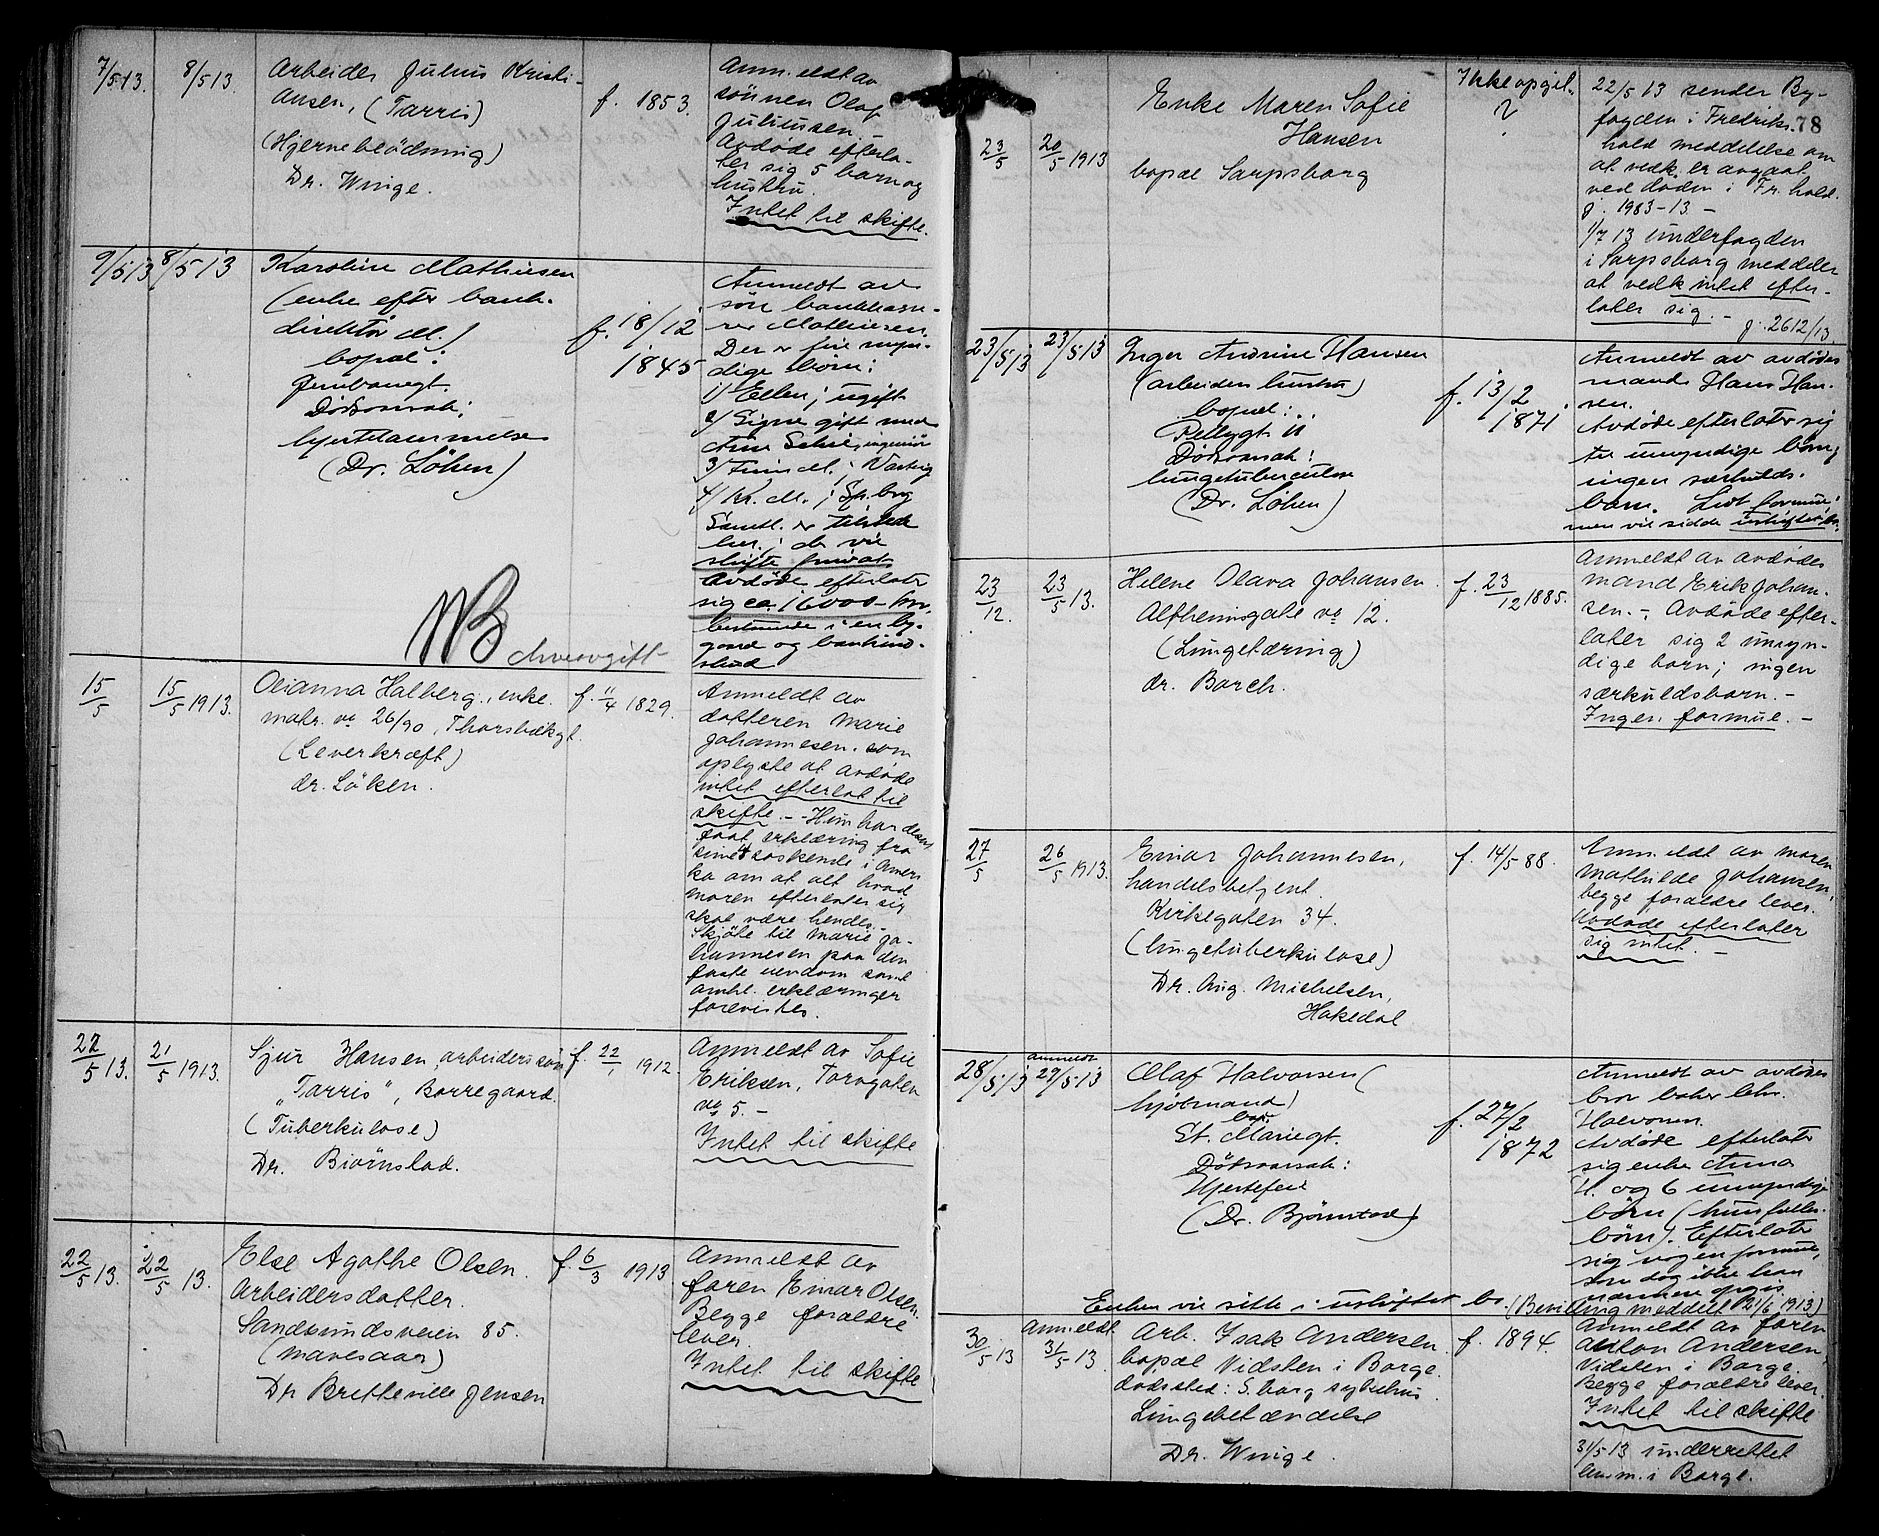 7/5 13.
8/5 13
Arbeider Julius Kristi-
ansen, (Tarris)
(Hjerneblödning)
Dr. Winge.
f. 1853.
Anmeldt av
sönnen Olaf
Juliussen. –
Avdøde efterla-
ter sig 5 barn og
hustru.
Intet til skifte.
9/5 13
8/5 13
Karoline Mathiesen
(enke efter bank-
direktör M.)
bopæl:
Jernbanegt.
Dödsaarsak:
hjertelammelse
(Dr. Löken)
f. 18/12
1845
Anmeldt av
søn bankkasse-
rer Mathiesen.
Der er fire myn-
dige börn:
1) Ellen; ugift
2) Signe gift med
ingeniör
3)
4) Kr. M.; Sp.borg
Samtl. er tilstede
her; de vil
skifte privat
Avdöde efterlater
sig ca. 16000 – kr.
bestaaende i en by-
gaard og bankind-
skud
NB Arveavgift
15/5
15/5 1913.
Olianna Halberg, enke.
matr. no 26/90, Thorsbækgt.
(Leverkræft)
dr. Löken.
f. 11/4 1829.
Anmeldt av
datteren Marie
Johannesen. som
oplyste at avdøde
intet efterlot til
skifte. – Hun har desuten
faat erklæring fra
sine 4 søskende i Ameri
ka om at alt hvad
moren efterlater sig
skal være hendes. –
Skjöte til Marie Jo-
hannesen paa den
faste eiendom samt
omhl. erklæringer
forevistes.
22/5 13.
21/5 1913.
Sjur Hansen, arbeiders søn
"Tarris", Borregaard.
(Tuberkulose)
Dr. Biørnstad.
f. 22/1 1912.
Anmeldt av Sofie
Eriksen, Torvgaten
no 5. –
Intet til skifte
22/5 13.
22/5 13.
Else Agathe Olsen.
Arbeidersdatter.
Sandesundsveien 85.
(mavesaar)
Dr Bretteville Jensen
f. 6/3 1913.
Anmeldt av
faren Einar Olsen
Begge foræeldre
lever
Intet til skifte
78
23/5
20/5 1913
Enke Maren Sofie
Hansen
bopæl Sarpsborg
Ikke opgit.
?
22/5 13 sender By-
fogden i Fredriks-
hald meddelelse om
at vedk. er avgaat
ved døden i Fr.hald.
j. 1983-13 –
1/7 13 underfogden
i Sarpsborg meddeler
at vedk intet efter-
later sig. –
j. 2612/13.
23/5 13
23/5 13
Inger Andrine Hansen
(arbeiders hustru)
bopæl:
Pellygt 11
Dödsaarsak:
lungetuberculose
(Dr. Löken)
f. 13/2
1871
Anmeldt av avdødes
mand Hans Han-
sen.
Avdøde efterlater sig
umyndige børn;
ingen særkulds-
børn. Lidt formue;
men vil sidde i uskiftet bo.
23/12.
23/5 13.
Helene Olava Johansen.
Altheimsgate no 12.
(Lungetæring)
dr. Borch.
f. 23/12 1885.
Anmeldt av avdødes
mand Erik Johan-
sen. – Avdøde efter-
later sig 2 umyn-
dige barn; ingen
særkuldsbarn. –
Ingen formue. –
27/5
26/5 1913.
Einar Johannesen,
handelsbetjent.
Kirkegaten 34.
(lungetuberkulose)
Dr. Aug. Michelsen,
Hakedal
f. 14/5 88.
Anmeldt av moren
Mathilde Johansen,
begge foræeldre lever.
Avdøde efterlater
sig intet. –
28/5 13
anmeldt
29/5 13
Olaf Halvorsen (
hjölmand)
bop.
St. Mariegt.
Dödsaarsak:
Hjertefeil
(Dr. Bjørnstad)
f. 27/2
1872
Anmeldt av avdødes
bror baker Chr.
Halvorsen.
Avdøde efterlater
sig enke Anna
H. og 6 umyndige
börn (hun felles-
börn). Efterlater
sig nogen formue,
som dog ikke kan
nærmere opgis
Enken vil sitte i uskiftet bo. (Bevilling meddelt 21/6 1913)
30/5 13
Anmeldt
31/5 13.
Arb. Isak Andersen.
bopæl Vidsten i Borge.
dødssted: S.borg sykehus.
Lungebetændelse
Dr. Winge.
f. 1894.
Anmeldt av faren
Anton Andersen,
Vidsten i Borge.
Begge foræeldre lever.
Intet til skifte
31/5 13 underrettet
lensm. i Borge.